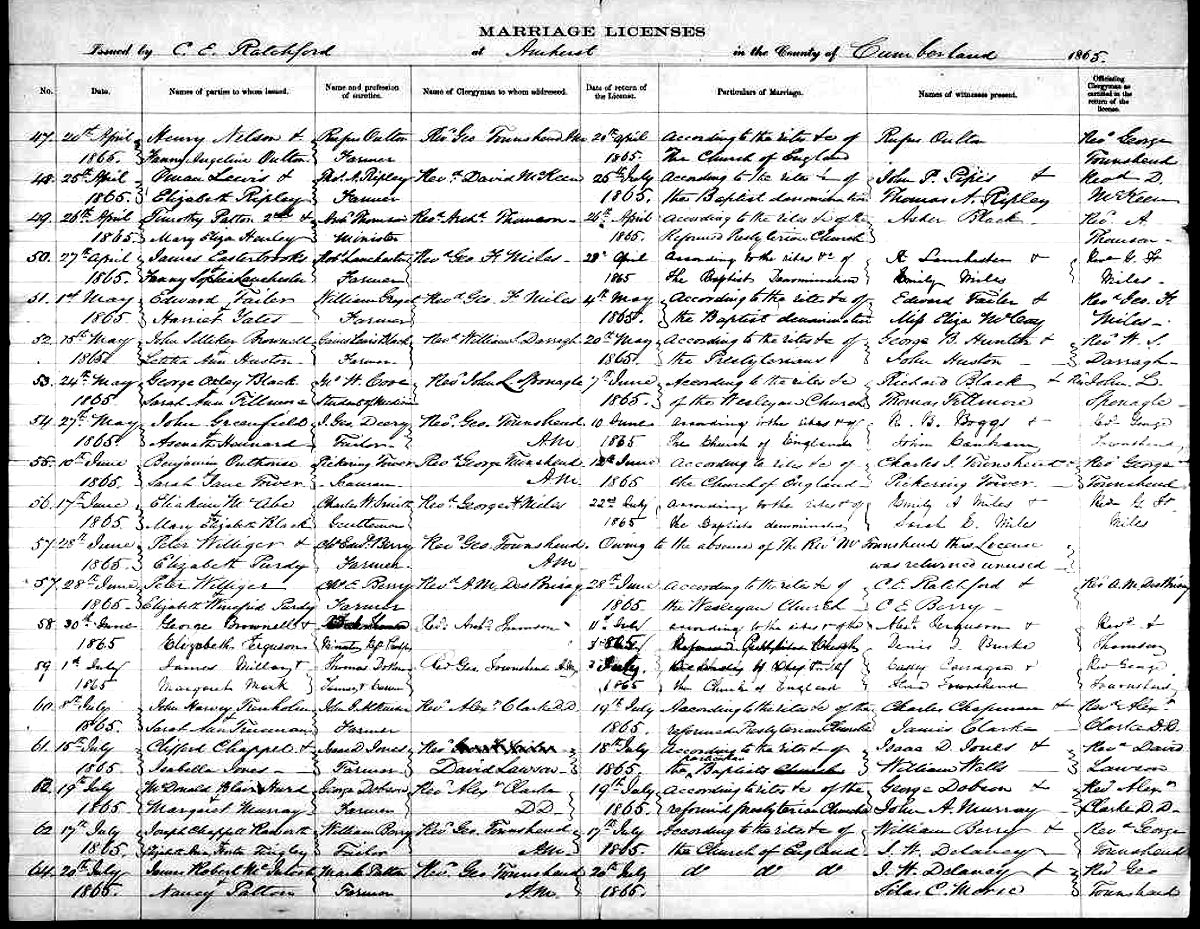 MARRIAGE LICENSES
Issued by C. E. Ratchford at Amherst in the County of Cumberland 1865.
No. Date. Names of parties to whom issued. Name and profession of sureties. Name of Clergyman to whom addressed. Date of return of the License. Particulars of Marriage. Names of witnesses present. Officiating Clergyman as certified in the return of the license.
47. 20th April Henry Nelson & Rufus Oulton Revd Geo Townshend 20th April According to the rites &c of Rufus Oulton Revd George
1865. Fanny Angeline Oulton Farmer 1865. The Church of England Townshend
48. 25th April Lewis & Thos. N. Ripley Revd David McKeen 25th July According to the rites &c of John P. Pipes & Revd D.
1865. Elizabeth Ripley Farmer 1865. the Baptist denomination Thomas N. Ripley McKeen
49. 26th April Timothy Patton 2nd & Archd Thomson Revd Archd Thomson 26th April According to the rites &c of the Asher Black Revd A.
1865. Mary Eliza Minister 1865. Reformed Presbyterian Church Thomson
50. 27th April James Easterbrooks Lanchester Revd Geo F Miles 28th April According to the rites &c of Lanchester & Revd G. F
1865. Fanny Sophia Lanchester Farmer 1865 the Baptist Denomination Emily Miles Miles
51. 1st May Edward Tailer William Revd Geo. F Miles 4th May According to the rites &c of Edward Tailer & Revd Geo. F.
1865 Harriet Yates Farmer 1865. the Baptist denomination Miss Eliza McCoy Miles
52. 15th May John Silliker Brownell Lewis Black Revd William S. Darragh 20th May According to the rites &c of George B. Hunter & Revd W. S.
1865. Letitia Ann Huston Farmer 1865. the Presbyterians John Huston Darragh
53. 24th May George Oxley Black W. Cove Revd John L. Sponagle 7th June According to the rites &c Richard Black & Revd John L.
1865 Sarah Ann Fillmore Student of Medicine 1865. of the Wesleyan Church Thomas Fillmore Sponagle
54. 27th May John Greenfield J. Geo Deery Revd Geo. Townshend 10 June According to the rites &c of R. B. Boggs & Revd George
1865. Asenath Tailor A M 1865 The Church of England John Townshend
55. 10th June Benjamin Outhouse Pickering Tower Revd George Townshend 12th June According to the rites &c of Charles I. Townshend & Revd George
1865. Sarah Jane Tower Seaman A M 1865 the Church of England Pickering Tower Townshend
56. 17th June McAbe Charles W. Smith Revd George F Miles 22nd July according to the rites &c of Emily A Miles & Revd G. F.
1865 Mary Elizabeth Black Gentleman 1865 the Baptists denomination Sarah E. Miles Miles
57. 28th June Peter Williger & Edwd. Berry Revd Geo. Townshend Owing to the absence of The Revd Mr Townshend this License
1865. Elizabeth Purdy Farmer A M was returned unused
57. 28th June Peter Williger E. Berry Revd A. M. DesBrisay 28th June according to the rites &c of C. E. Ratchford & Revd A. M. DesBrisay
1865. Elizabeth Winifred Purdy Farmer 1865. the Wesleyan Church C E Berry
58. 30th June George Brownell & Revd Archd Thomson 11th July according to the rites &c of the Alexr. Ferguson & Revd A
1865 Elizabeth Ferguson 1865 Reformed Church Denis Burke Thomson
59. 1st July James Millar & Thomas Revd Geo Townshend July According to the rites &c of Casey & Revd George
1865 Margaret Mack 1865 the Church of England Townshend Townshend
60. 8th July John Harvey Trenholm John Revd Alexr Clarke D.D. 19th July According to the rites &c of the Charles Chapman & Revd Alexr
1865. Sarah Ann Trueman Farmer 1865. reformed Presbyterian Church James Clark Clarke D.D.
61. 15th July Clifford Chappel & Isaac D. Jones Revd 18th July according to the rites &c of Isaac D. Jones & Revd David
1865 Isabella Jones Farmer David Lawson 1865 the particular Baptists Church William Wells Lawson
62. 19th July McDonald Blair Hurd George Dobson Revd Alexr Clarke 19th July According to the rites &c of the George Dobson & Revd Alexr
1865 Margaret Murray Farmer D D. 1865. reformed presbyterian Church John A. Murray Clarke D. D.
62 17th July Joseph Chappell William Berry Revd Geo. Townshend 17th July According to the rites &c of William Berry & Revd George
1865. Elizabeth Ann Foster Tingley Tailor A M 1865. the Church of England J. W. Delaney Townshend
64. 20th July James Robert McIntosh Mark Patton Revd Geo Townshend 20th July do do do J. W. Delaney & Revd Geo
1865. Nancy Pattom Farmer A M. 1865. Silas C. Morse Townshend